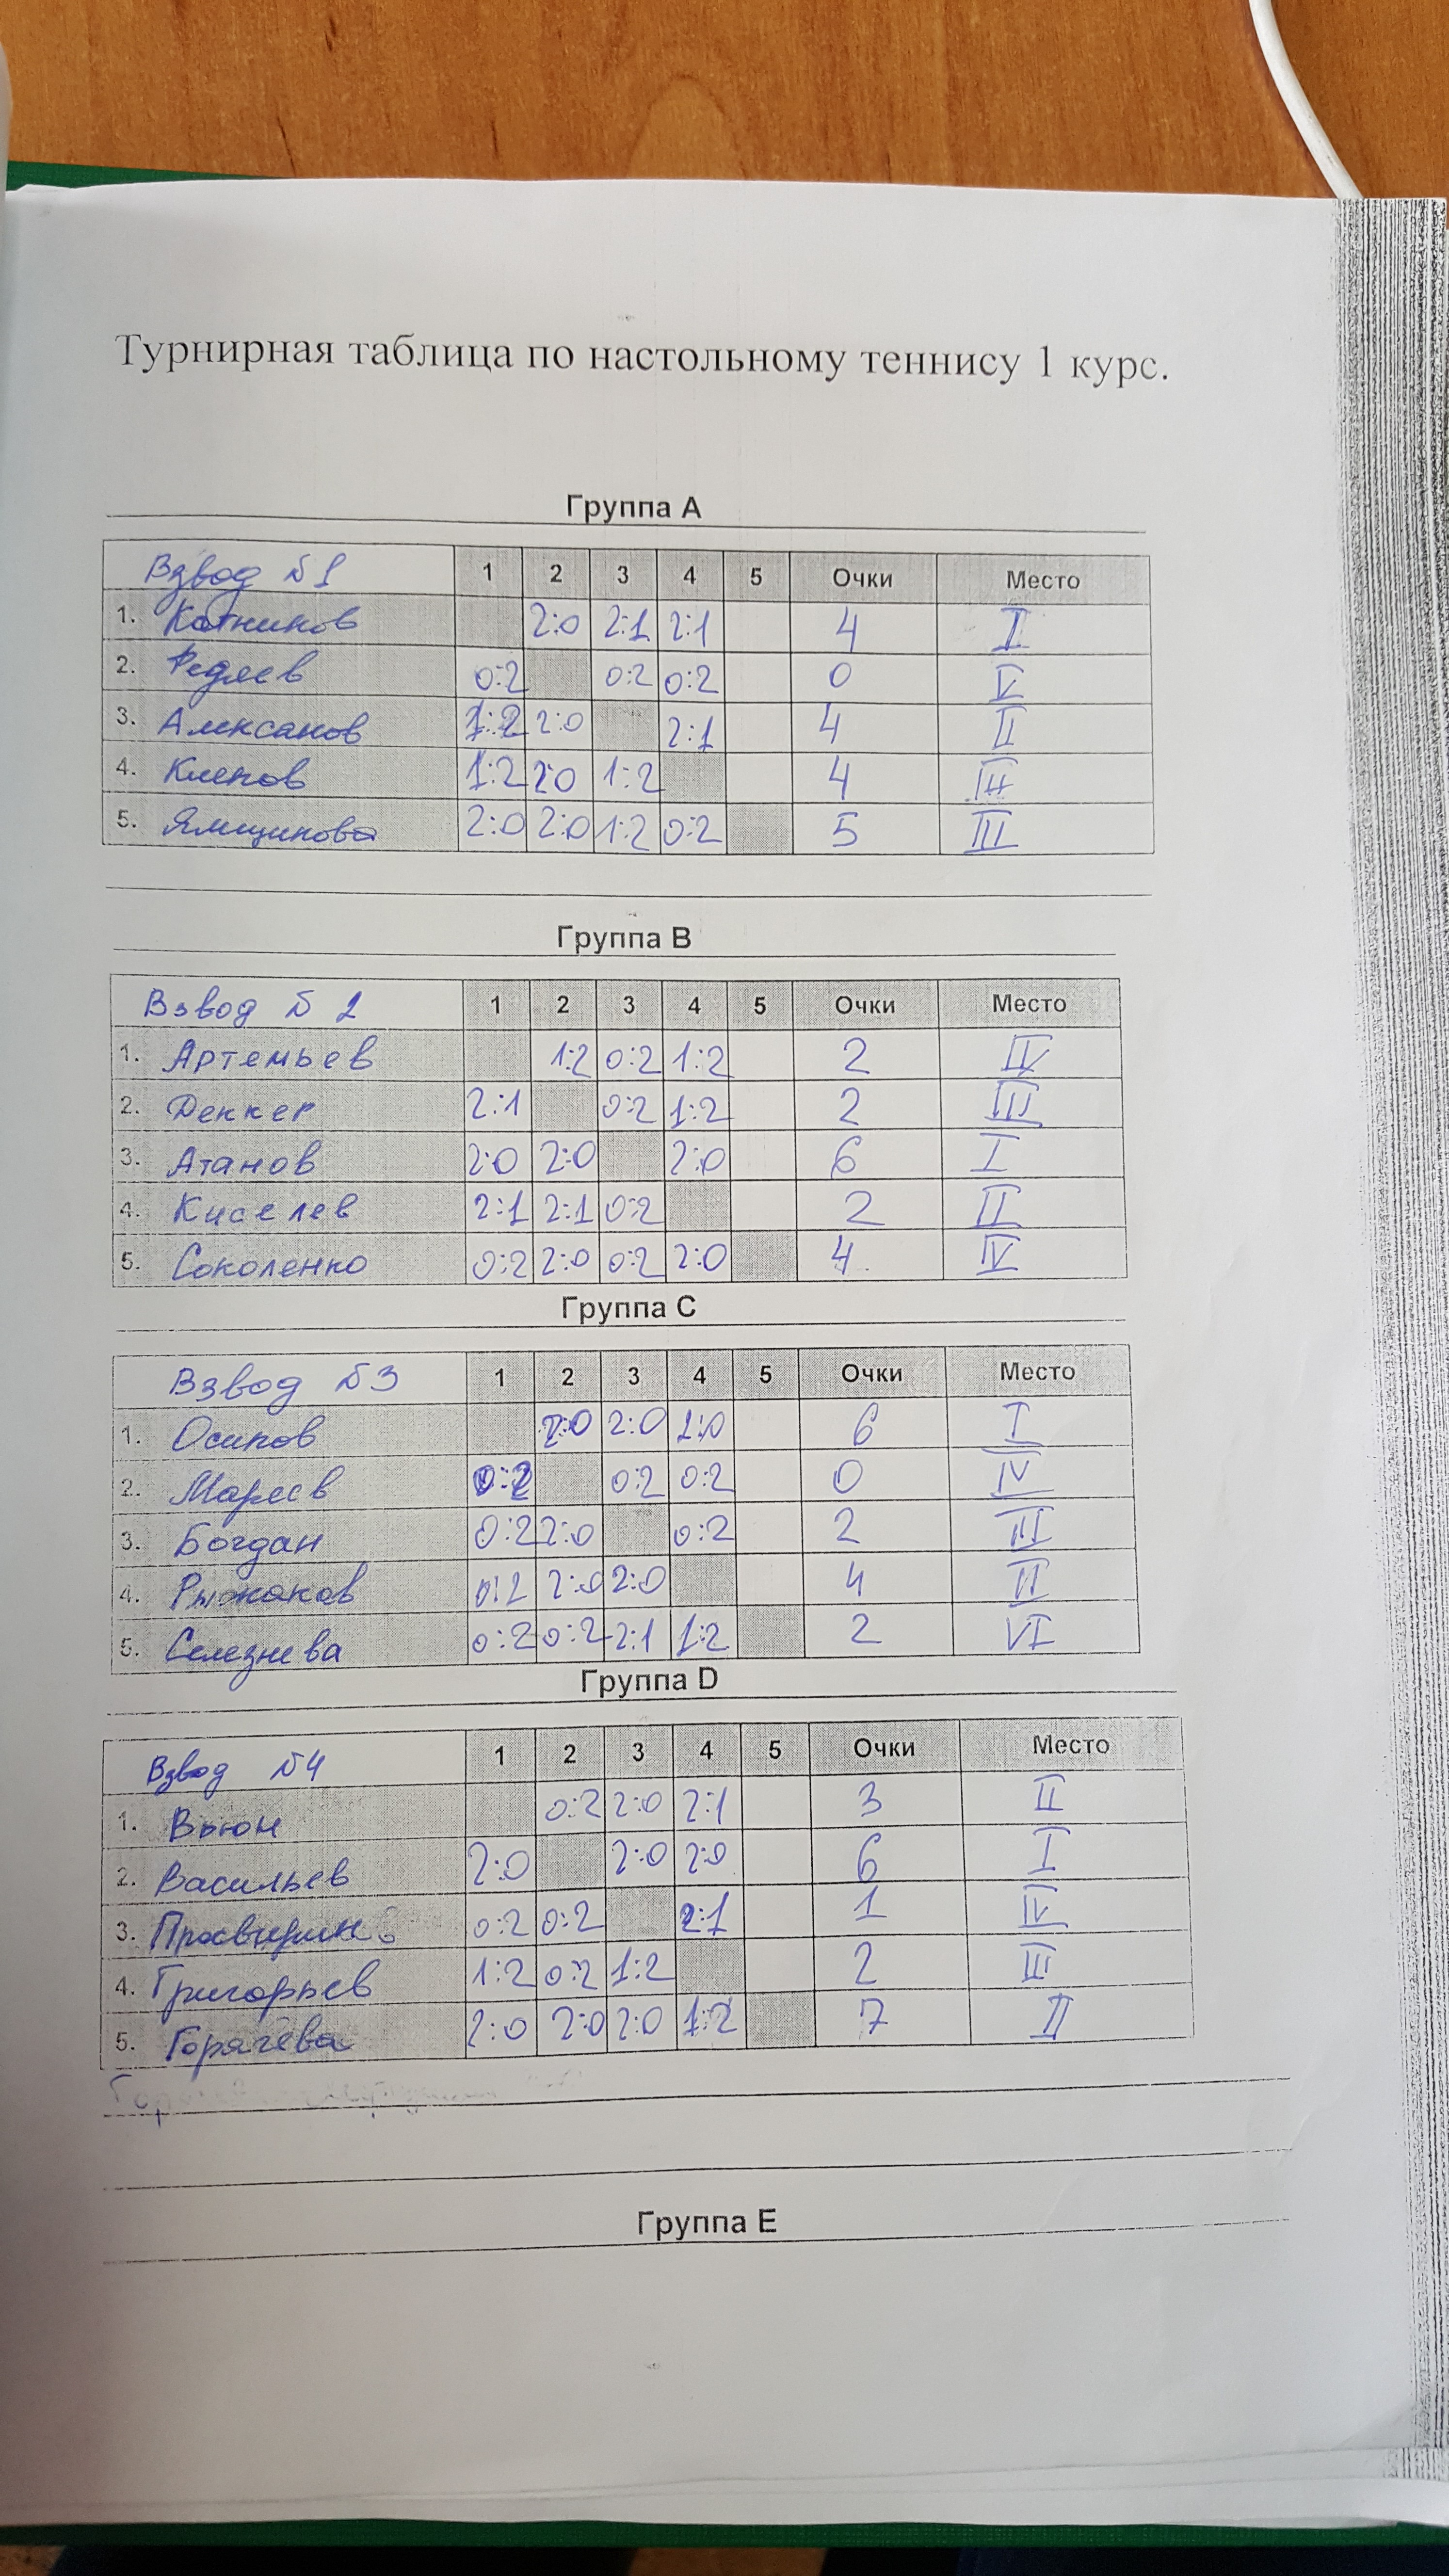 Турнирная таблица по настольному теннису 1 курс.
Группа А
Взвод №1 1 2 3 4 5 Очки Место
1. Котников 2:0 2:1 2:1 4 I
2. Редяев 0:2 0:2 0:2 0 V
3. Алексанов 1:2 2:0 2:1 4 II
4. Клепов 1:2 2:0 1:2 4 III
5. Ямщикова 2:0 2:0 1:2 0:2 5 III
Группа В
Взвод № 2 1 2 3 4 5 Очки Место
1. Артемьев 1:2 0:2 1:2 2 IV
2. Деккер 2:1 0:2 1:2 2 III
3. Атанов 2:0 2:0 2:0 6 I
4. Киселев 2:1 2:1 0:2 2 II
5. Соколенко 0:2 2:0 0:2 2:0 4 IV
Группа С
Взвод №3 1 2 3 4 5 Очки Место
1. Осипов 2:0 2:0 2:0 6 I
2. Мареев 0:2 0:2 0:2 0 IV
3. Богдан 0:2 2:0 0:2 2 III
4. Рыжаков 0:2 2:0 2:0 4 II
5. Селезнева 0:2 0:2 2:1 1:2 2 VI
Группа D
Взвод №4 1 2 3 4 5 Очки Место
1. Вьюн 0:2 2:0 2:1 3 II
2. Васильев 2:0 2:0 2:0 6 I
3. Просвирин 0:2 0:2 2:1 1 IV
4. Григорьев 1:2 0:2 1:2 2 III
5. Горячева 2:0 2:0 2:0 1:2 7 II
Группа Е